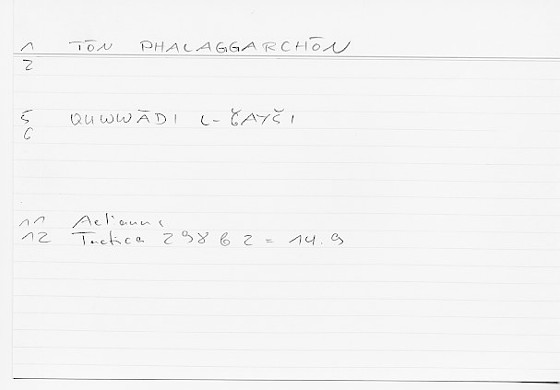 1 TŌN PHALAGGARCHŌN
2
5 QUWWĀDI L-ǦAYŠI
6
11 Aelianus
12 Tactica 298 B 2 = 14.9